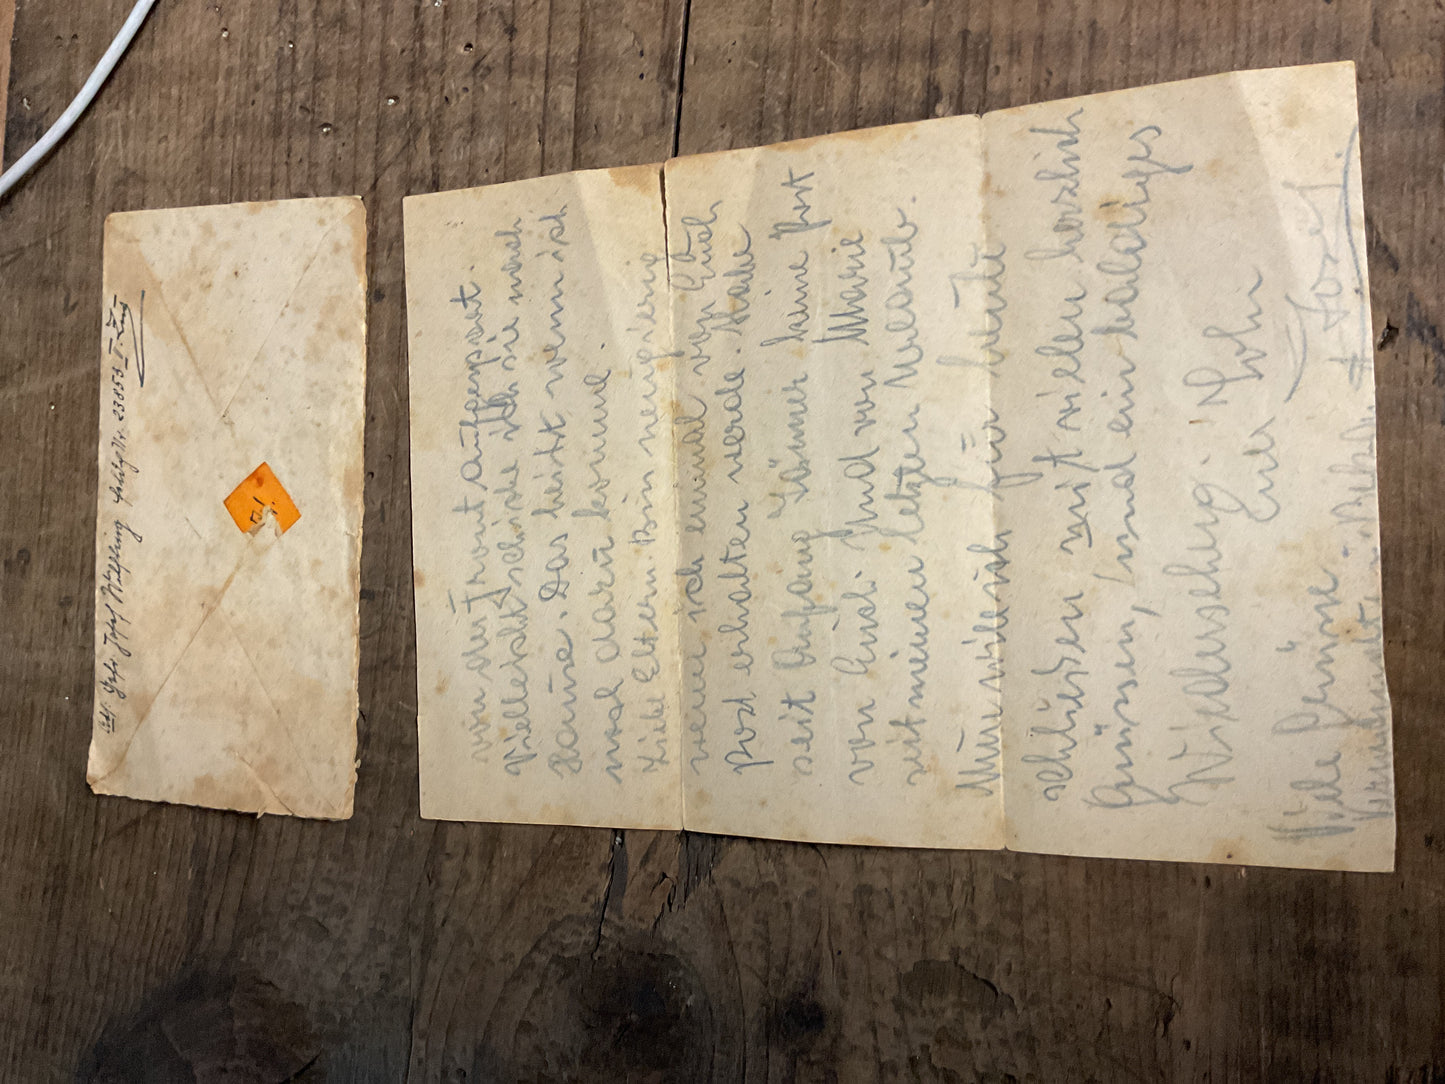 Abs: Gefr. Josef Wülfring Feldp.Nr. 23853
von der Front aufgepasst.
Vielleicht schicke ich sie nach
Hause. Das heist wenn ich
noch dazu komme
Liebe Eltern. Bin neugierig
wenn ich einmal von Euch
Post erhalten werde. Habe
seit Anfang Jänner keine Post
von Euch. Und von Marie
seit meinen letzten Urlaub.
Nun will ich für heute
schließen mit vielen herzlich
Grüssen, und ein baldiges
Wiedersehen
Euer Sohn
Josef.
Viele Grüsse